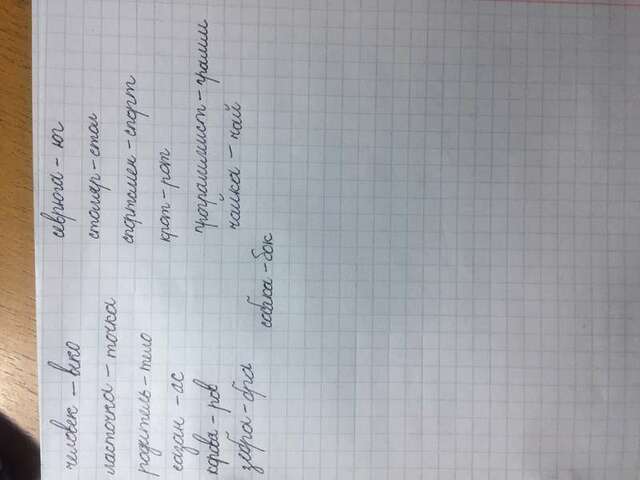 человек – веко
ласточка – точка
родитель – тело
сазан – ас
корова – ров
зебра – бра
севрюга – юг
столяр – стол
спортсмен – спорт
крот – рот
программист – грамм
чайка – чай
собака – бок